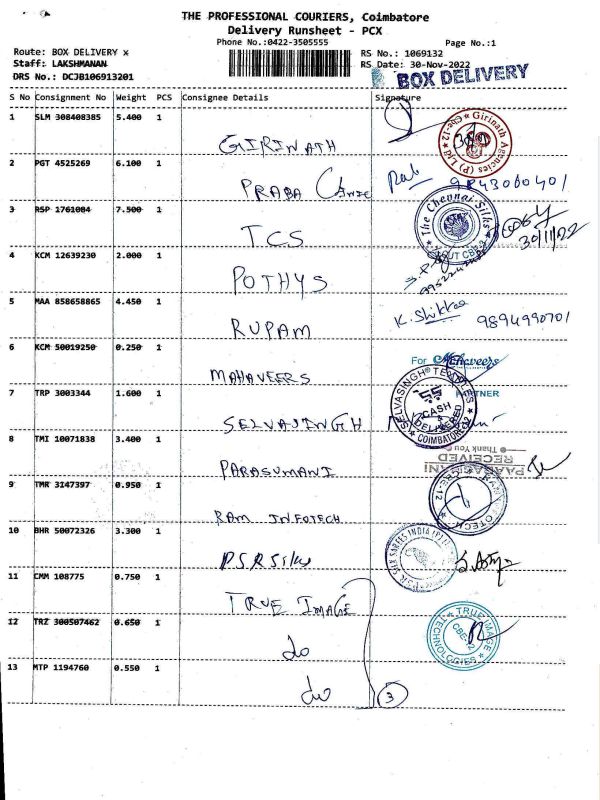 THE PROFESSIONAL COURIERS, Coimbatore
Delivery Runsheet - PCX
Phone No.:0422-3505555
Page No.:1
Route: BOX DELIVERY x
RS No.: 1069132
Staff: LAKSHMANAN
RS Date: 30-Nov-2022
DRS No.: DCJB106913201
BOX DELIVERY
S No Consignment No Weight PCS Consignee Details Signature
1 SLM 308408385 5.400 1 GIRINATH
Girinath Agencies (P) Ltd Cbe-12
2 PGT 4525269 6.100 1 PRABA
9843060401
3 RSP 1761084 7.500 1 TCS
The Chennai Silks
30/11/22
4 KCM 12639230 2.000 1 POTHYS
5 MAA 858658865 4.450 1 RUPAM
9894990701
6 KCM 50019250 0.250 1 MAHAVEERS
For Mahaveers
PARTNER
7 TRP 3003344 1.600 1 SELVASINGH
CASH
DELIVERED
COIMBATORE-12
8 TMI 10071838 3.400 1 PARASUMANI
Thank You
RECEIVED
9 TMR 3147397 0.950 1 RAM INFOTECH
10 BHR 50072326 3.300 1 PSR Silks
PSR SILK SAREES INDIA
11 CMM 108775 0.750 1 TRUE IMAGE
12 TRZ 300507462 0.650 1 do
TRUE IMAGE TECHNOLOGIES
CBE-12
13 MTP 1194760 0.550 1 do
3